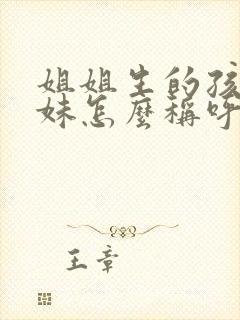 姐姐生的孩
妹怎麼稱呼
王章